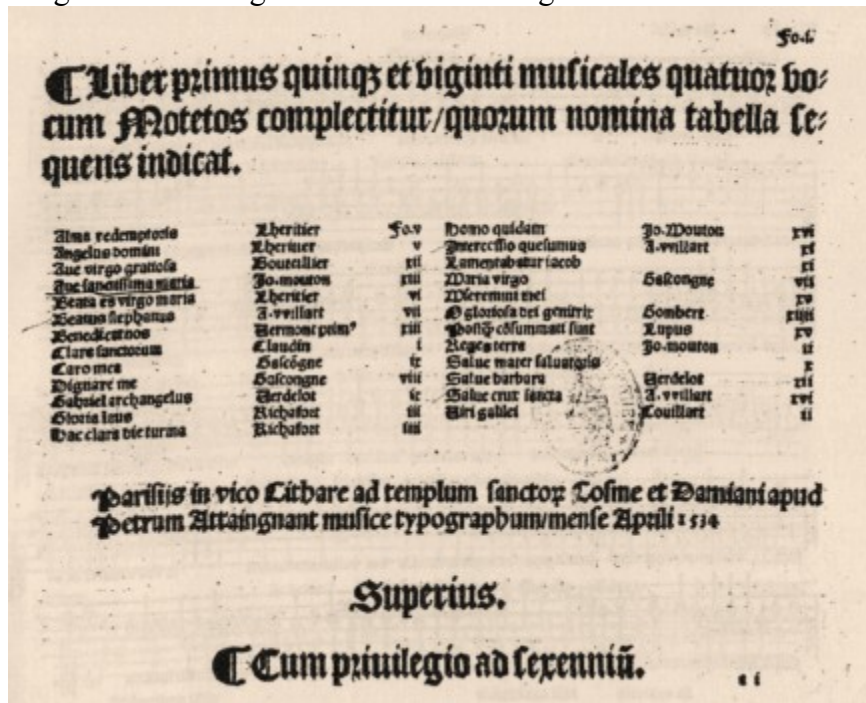 Fo.i.
¶ Liber primus quinqꝫ et viginti musicales quatuor vo⸗
cum Motetos complectitur/quorum nomina tabella se⸗
quens indicat.
Alma redemptoris Lheritier Fo.v
Angelus domini Lheritier v
Aue virgo gratiosa Bouteillier xii
Aue sanctissima maria Jo.mouton xiii
Beata es virgo maria Lheritier vi
Beatus stephanus A.vvillart vii
Benedicat nos Vermont prim⁹ xiii
Clare sanctorum Claudin i
Caro mea Gascōgne ix
Dignare me Gascongne viii
Gabriel archangelus Verdelot ix
Gloria laus Richafort iii
Hac clara die turma Richafort iiii
Homo quidam Jo.Mouton xvi
Intercessio quesumus A.vvillart xi
Lamentabatur iacob xi
Maria virgo Gascongne vii
Miseremini mei xv
O gloriosa dei genitrix Gombert xiiii
Postq̄ cōsummati sunt Lupus xv
Reges terre Jo.mouton ii
Salue mater saluatoris x
Salue barbara Verdelot xii
Salue crux sancta A.vvillart xvi
Viri galilei Couillart ii
Parisiis in vico Cithare ad templum sanctoꝝ Cosme et Damiani apud
Petrum Attaingnant musice typographum/mense Aprili 1534
Superius.
¶ Cum priuilegio ad sexenniū.